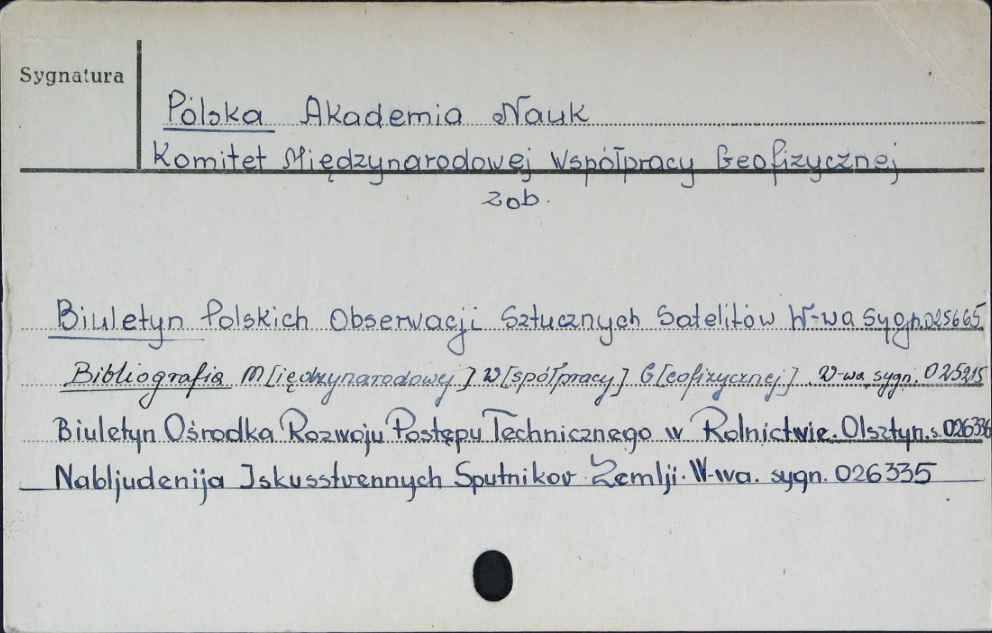 Sygnatura
Polska Akademia Nauk
Komitet Międzynarodowej Współpracy Geofizycznej
zob.
Biuletyn Polskich Obserwacji Sztucznych Satelitów W-wa Sygn. 025665
Bibliografia M[iędzynarodowej] W[spółpracy] G[eofizycznej]. W-wa sygn. 025215
Biuletyn Ośrodka Rozwoju Postępu Technicznego w Rolnictwie. Olsztyn. s. 026336
Nabljudenija Iskusstvennych Sputnikov Zemlji. W-wa. sygn. 026335